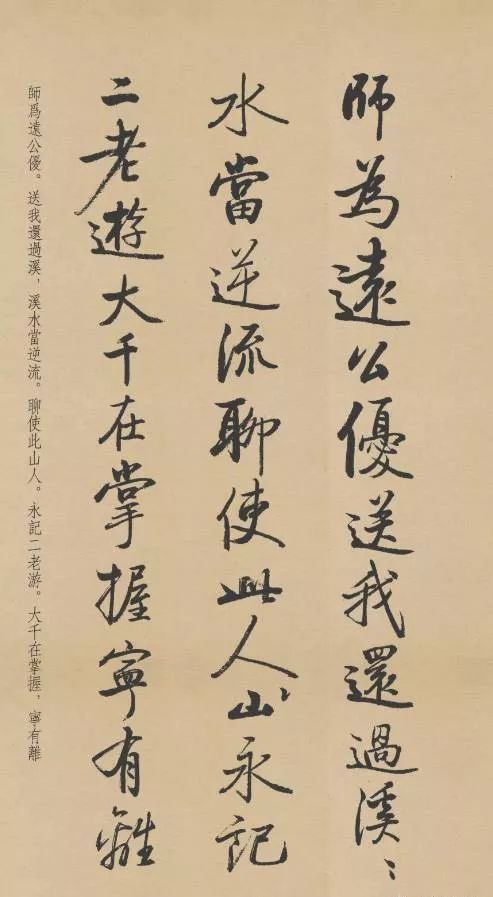 師為遠公優送我還過溪〻
水當逆流聊使此人山〻永記
二老遊大千在掌握寧有離
師爲遠公優。送我還過溪，溪水當逆流。聊使此山人。永記二老游。大千在掌握，寧有離